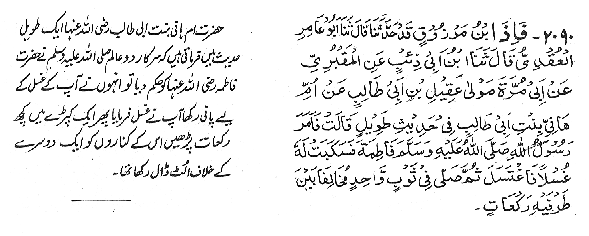 ۲۰۹۰- فَإِذَا ابْنُ مَرْزُوْقٍ قَدْ حَدَّثَنَا قَالَ ثَنَا أَبُوْ عَامِرِ
الْعَقَدِىُّ قَالَ ثَنَا ابْنُ اَبِىْ ذِئْبٍ عَنِ الْمَقْبُرِيِّ
عَنْ اَبِىْ مُرَّةَ مَوْلٰى عَقِيْلِ بْنِ اَبِىْ طَالِبٍ عَنْ اُمِّ
هَانِئٍ بِنْتِ اَبِىْ طَالِبٍ فِىْ حَدِيْثٍ طَوِيْلٍ قَالَتْ فَاَمَرَ
رَسُوْلُ اللهِ صَلَّى اللهُ عَلَيْهِ وَسَلَّمَ فَاطِمَةَ فَسَكَبَتْ لَهُ
غُسْلًا فَاغْتَسَلَ ثُمَّ صَلّٰى فِىْ ثَوْبٍ وَاحِدٍ مُخَالِفًا بَيْنَ
طَرَفَيْهِ رَكَعَاتٍ۔
حضرت ام ہانی بنت ابی طالب رضی اللہ عنہا ایک طویل
حدیث میں فرماتی ہیں کہ سرکار دو عالم صلی اللہ علیہ وسلم نے حضرت
فاطمہ رضی اللہ عنہا کو حکم دیا تو انہوں نے آپ کے غسل کے
لیے پانی رکھا آپ نے غسل فرمایا پھر ایک کپڑے میں کچھ
رکعات پڑھیں اس کے کناروں کو ایک دوسرے
کے خلاف الٹ ڈال رکھا تھا۔